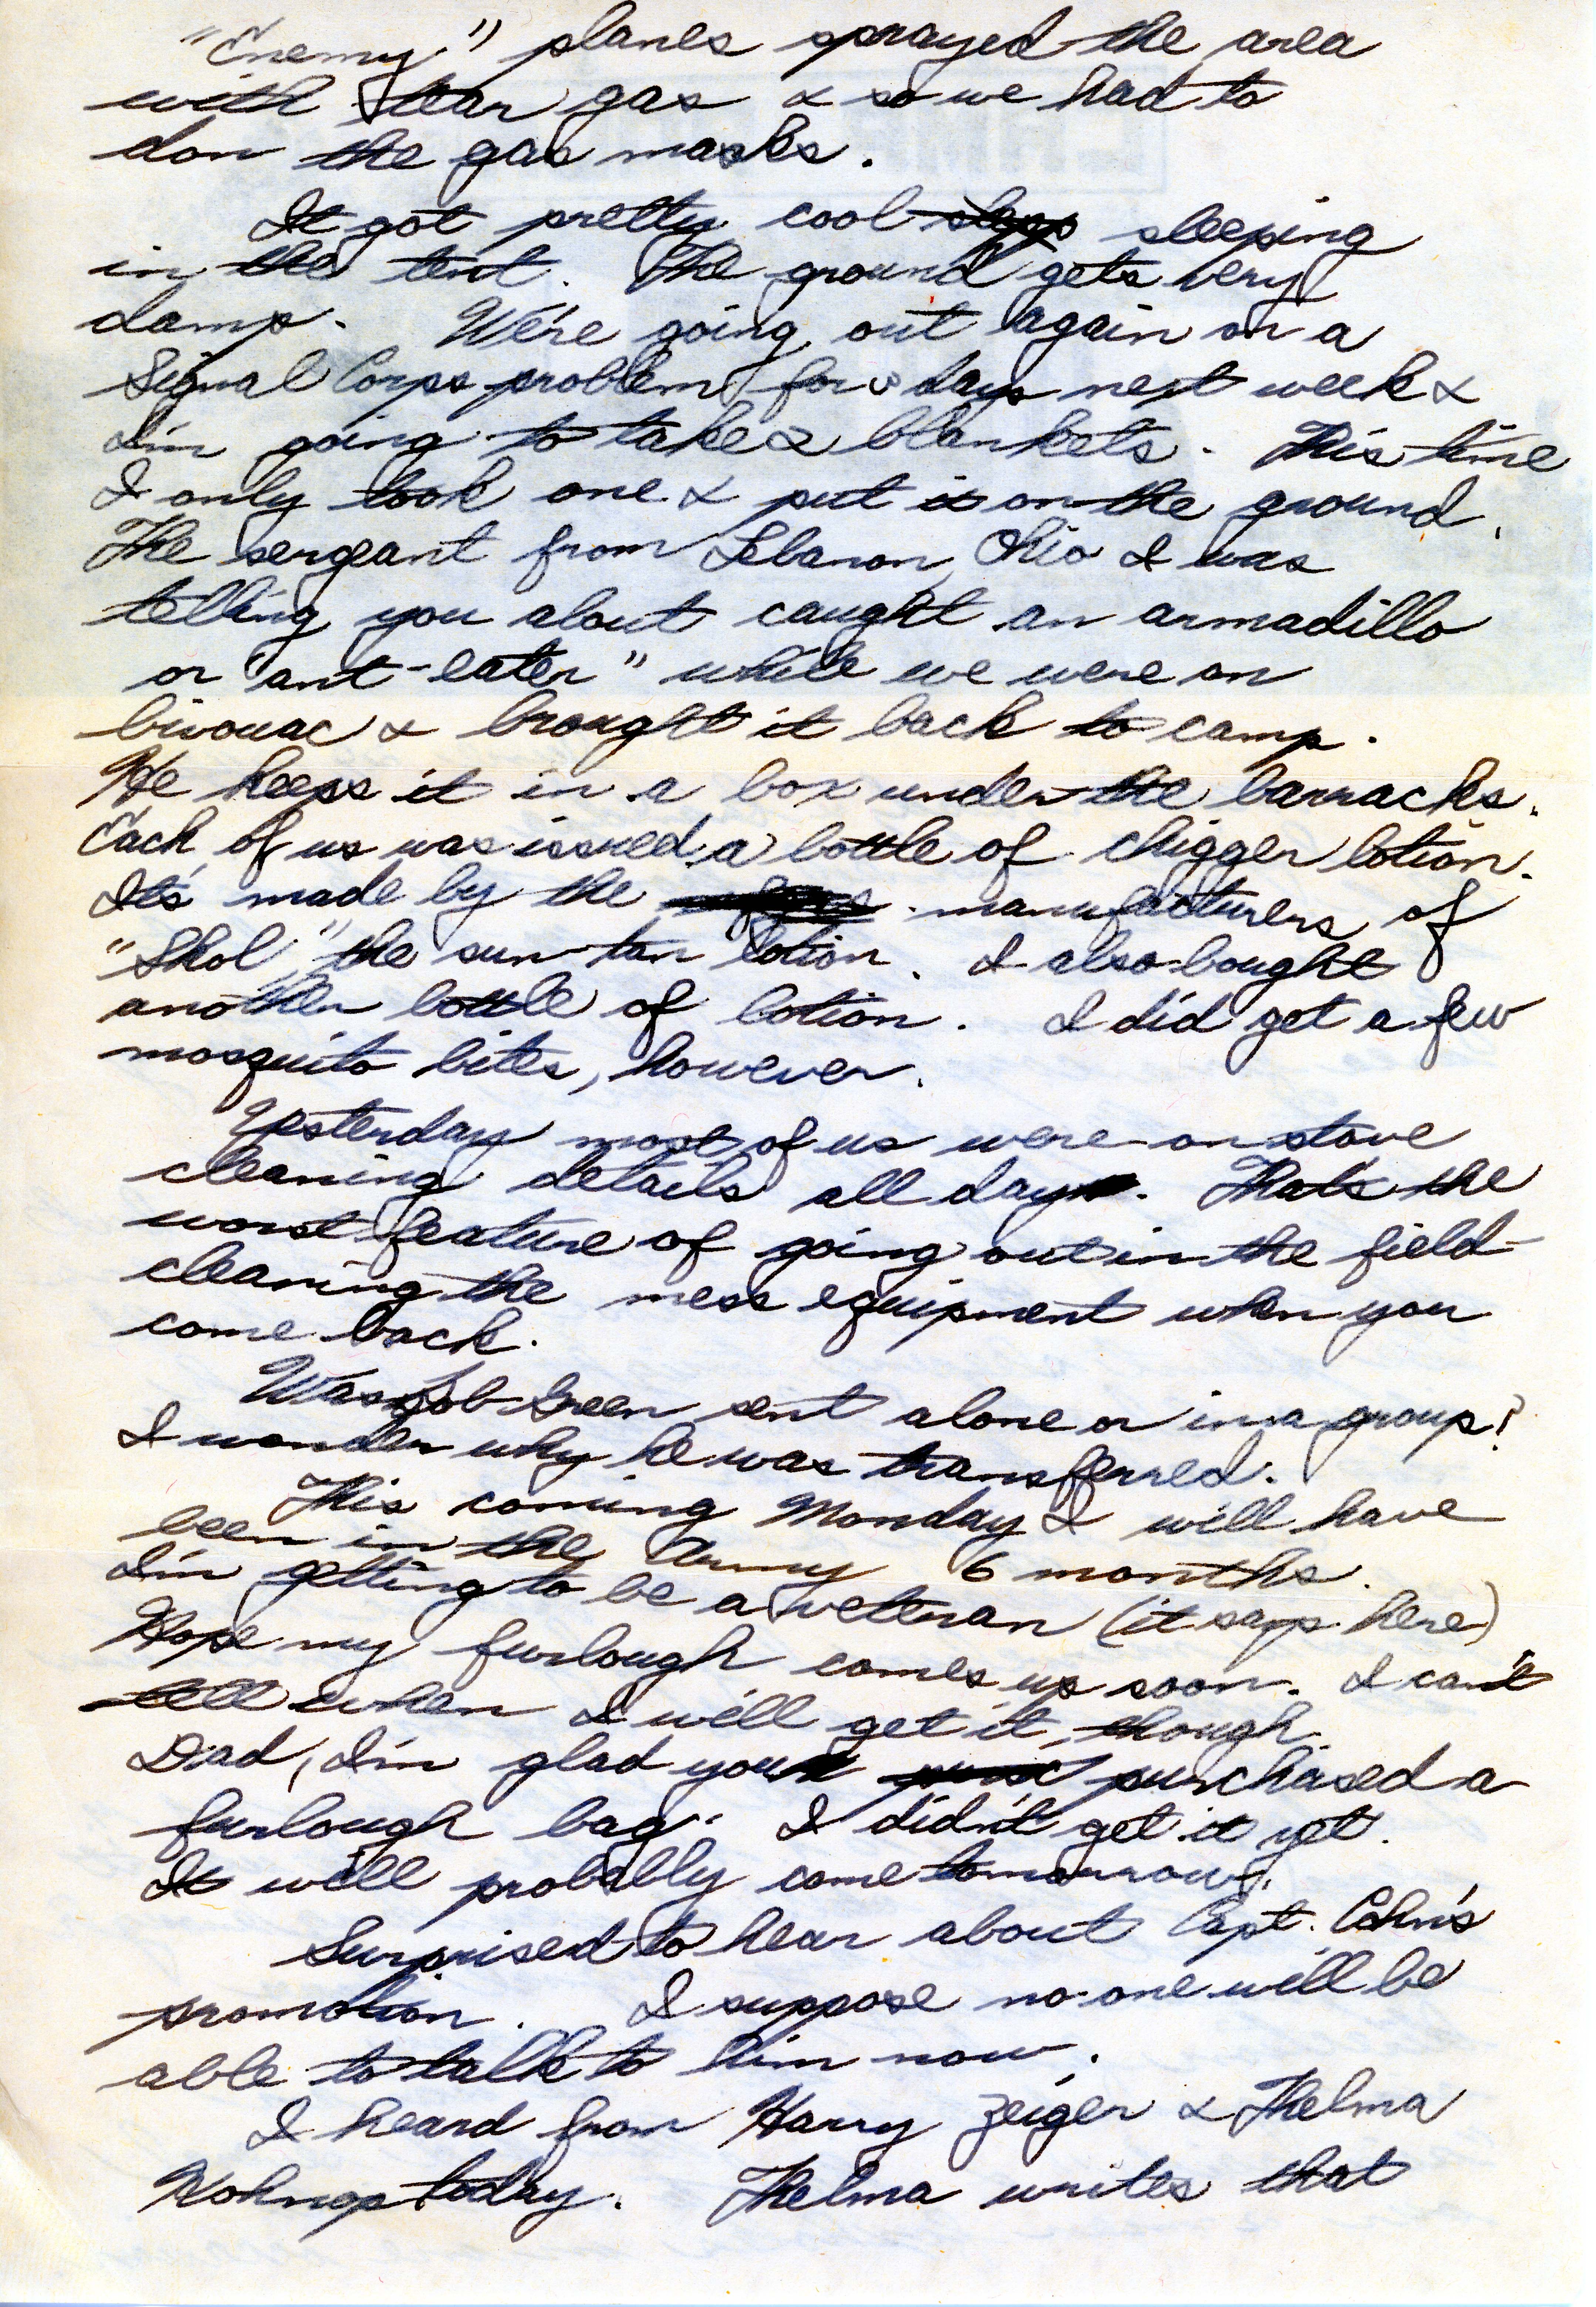 "Enemy" planes sprayed the area
with tear gas & so we had to
don the gas masks.
It got pretty cool sleeping
in the tent. The ground gets very
damp. We're going out again on a
Signal Corps problem for days next week &
I'm going to take 2 blankets. This time
I only took one & put it on the ground.
The sergeant from Lebanon, Ohio I was
telling you about caught an armadillo
or "ant-eater" while we were on
bivouac & brought it back to camp.
He keeps it in a box under the barracks.
Each of us was issued a bottle of chigger lotion.
It's made by the manufacturers of
"Skol," the sun-tan lotion. I also bought
another bottle of lotion. I did get a few
mosquito bites, however.
Yesterday most of us were on stove
cleaning details all day. That's the
worst feature of going out in the field -
cleaning the mess equipment when you
come back.
Was Bob Green sent alone or in a group?
I wonder why he was transferred.
This coming Monday I will have
been in the Army 6 months.
I'm getting to be a veteran (it says here)
Hope my furlough comes up soon. I can't
tell when I will get it, though.
Dad, I'm glad you purchased a
furlough bag. I didn't get it yet.
It will probably come tomorrow.
Surprised to hear about Capt. Cohn's
promotion. I suppose no one will be
able to talk to him now.
I heard from Harry Zeiger & Thelma
today. Thelma writes that